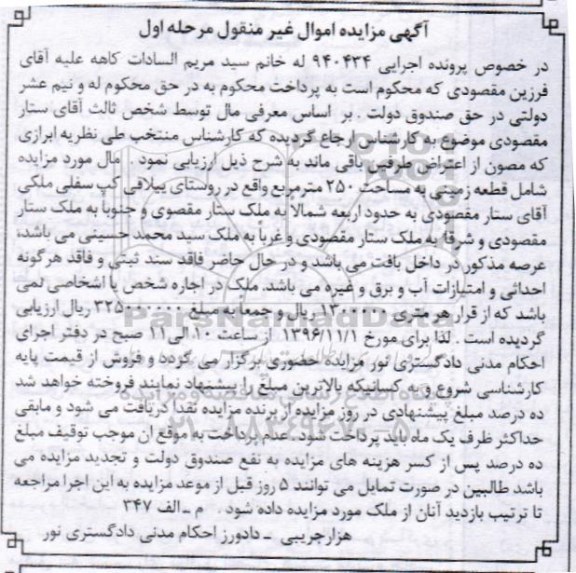 آگهی مزایده اموال غیر منقول مرحله اول
در خصوص پرونده اجرایی ۹۴۰۴۳۴ له خانم سید مریم السادات کاهه علیه آقای
فرزین مقصودی که محکوم است به پرداخت محکوم به در حق محکوم له و نیم عشر
دولتی در حق صندوق دولت . بر اساس معرفی مال توسط شخص ثالث آقای ستار
مقصودی موضوع به کارشناس ارجاع گردیده که کارشناس منتخب طی نظریه ابرازی
که مصون از اعتراض طرفین باقی ماند به شرح ذیل ارزیابی نمود . مال مورد مزایده
شامل قطعه زمینی به مساحت ۲۵۰ مترمربع واقع در روستای ییلاقی کپ سفلی ملکی
آقای ستار مقصودی به حدود اربعه شمالا به ملک ستار مقصوی و جنوبا به ملک ستار
مقصودی و شرقا به ملک ستار مقصودی و غربا به ملک سید محمد حسینی می باشد،
عرصه مذکور در داخل بافت می باشد و در حال حاضر فاقد سند ثبتی و فاقد هرگونه
احداثی و امتیازات آب و برق و غیره می باشد. ملک در اجاره شخص یا اشخاصی نمی
باشد که از قرار هر متری ۱۳۰۰۰۰۰ ریال و جمعا به مبلغ ۳۲۵۰۰۰۰۰۰ ریال ارزیابی
گردیده است . لذا برای مورخ ۱۳۹۶/۱۱/۱ از ساعت ۱۰ الی ۱۱ صبح در دفتر اجرای
احکام مدنی دادگستری نور مزایده حضوری برگزار می گردد و فروش از قیمت پایه
کارشناسی شروع و به کسانیکه بالاترین مبلغ را پیشنهاد نمایند فروخته خواهد شد
ده درصد مبلغ پیشنهادی در روز مزایده از برنده مزایده نقدا دریافت می شود و مابقی
حداکثر ظرف یک ماه باید پرداخت شود. عدم پرداخت به موقع ان موجب توقیف مبلغ
ده درصد پس از کسر هزینه های مزایده به نفع صندوق دولت و تجدید مزایده می
باشد طالبین در صورت تمایل می توانند ۵ روز قبل از موعد مزایده به این اجرا مراجعه
تا ترتیب بازدید آنان از ملک مورد مزایده داده شود . م - الف ۳۴۷
هزارجریبی - دادورز احکام مدنی دادگستری نور
ParsNamadData